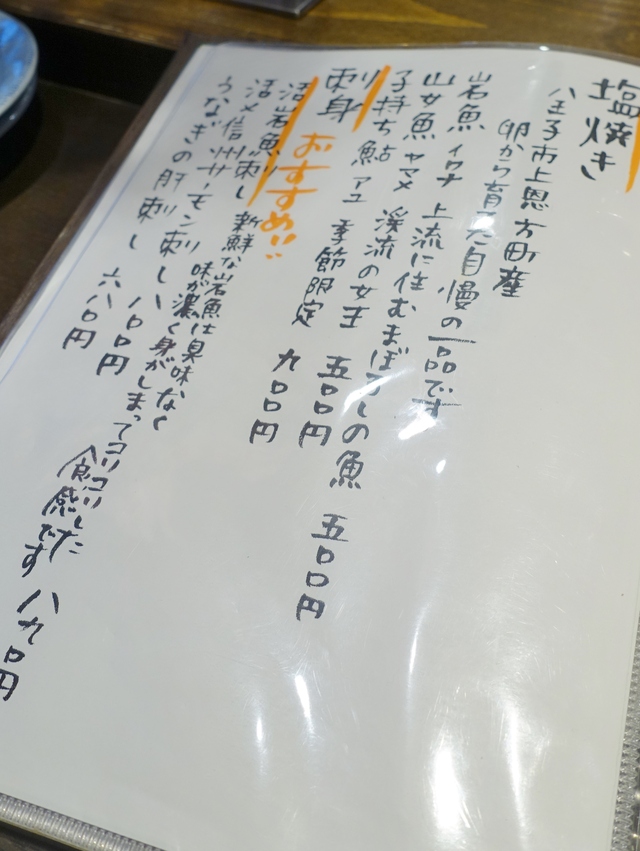 塩焼き
八王子市上恩方町産
卵から育てた自慢の一品です
岩魚 イワナ 上流に住むまぼろしの魚 五〇〇円
山女魚 ヤマメ 渓流の女王 五〇〇円
子持ち鮎 アユ 季節限定 九〇〇円
刺身 おすすめ!!
活岩魚刺し 新鮮な岩魚は臭味なく
味が濃く身がしまってコリコリした
食感です 八九〇円
活〆信州サーモン刺し 八〇〇円
うなぎの肝刺し 六八〇円